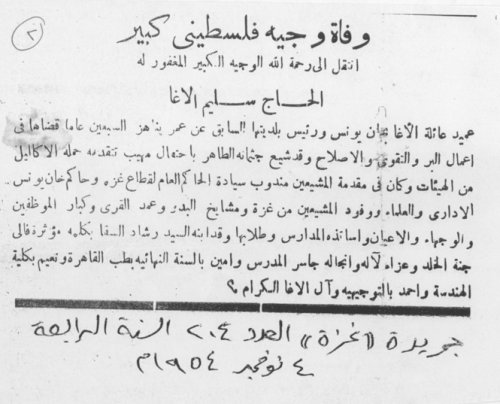 ٢
وفاة وجيه فلسطينى كبير
انتقل الى رحمة الله الوجيه الكبير المغفور له
الحاج سليم الاغا
عميد عائلة الآغا بخان يونس ورئيس بلديتها السابق عن عمر يناهز السبعين عاما قضاها فى
اعمال البر والتقوى والاصلاح وقد شيع جثمانه الطاهر باحتفال مهيب تتقدمه حملة الاكاليل
من الهيئات وكان فى مقدمة المشيعين مندوب سيادة الحاكم العام لقطاع غزه وحاكم خان يونس
الادارى والعلماء ووفود المشيعين من غزة ومشايخ البدو وعمد القرى وكبار الموظفين
والوجهاء والاعيان واساتذه المدارس وطلابها وقد ابنه السيد رشاد السقا بكلمه مؤثرة فالى
جنة الخلد وعزاء لآله وانجاله جاسر المدرس وامين بالسنة النهائيه بطب القاهرة ونعيم بكلية
الهندسة واحمد بالتوجيهيه وآل الاغا الكرام ؟
جريدة «غزة» العدد ٢٠٤ السنة الرابعة
٤ نوفمبر ١٩٥٤م